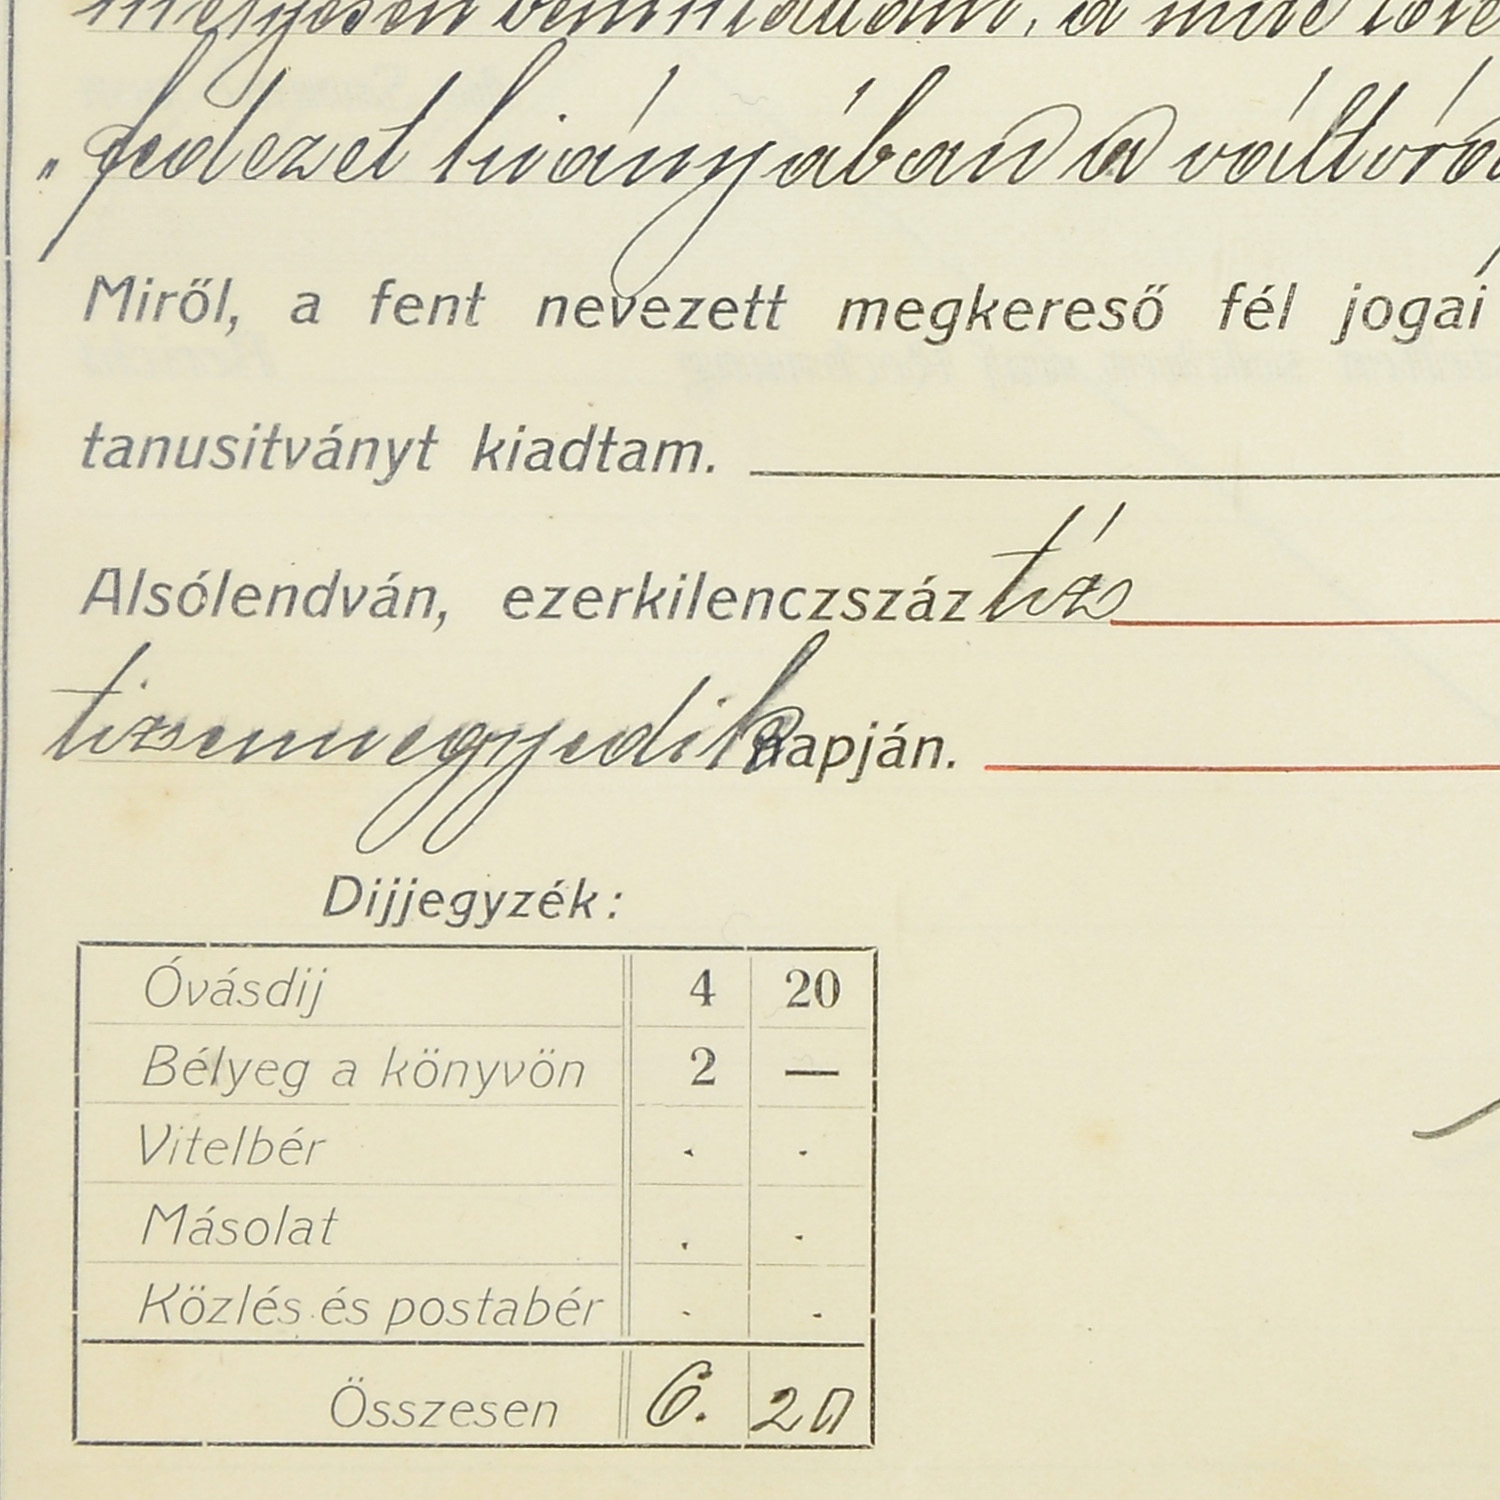 bemutattam, a mire
"fedezet hiányában a váltó
Miről, a fent nevezett megkereső fél jogai
tanusitványt kiadtam.
Alsólendván, ezerkilenczszáz tiz
tizennegyedik napján.
Dijjegyzék:
Óvásdij 4 20
Bélyeg a könyvön 2 —
Vitelbér . .
Másolat . .
Közlés és postabér . .
Összesen 6. 20